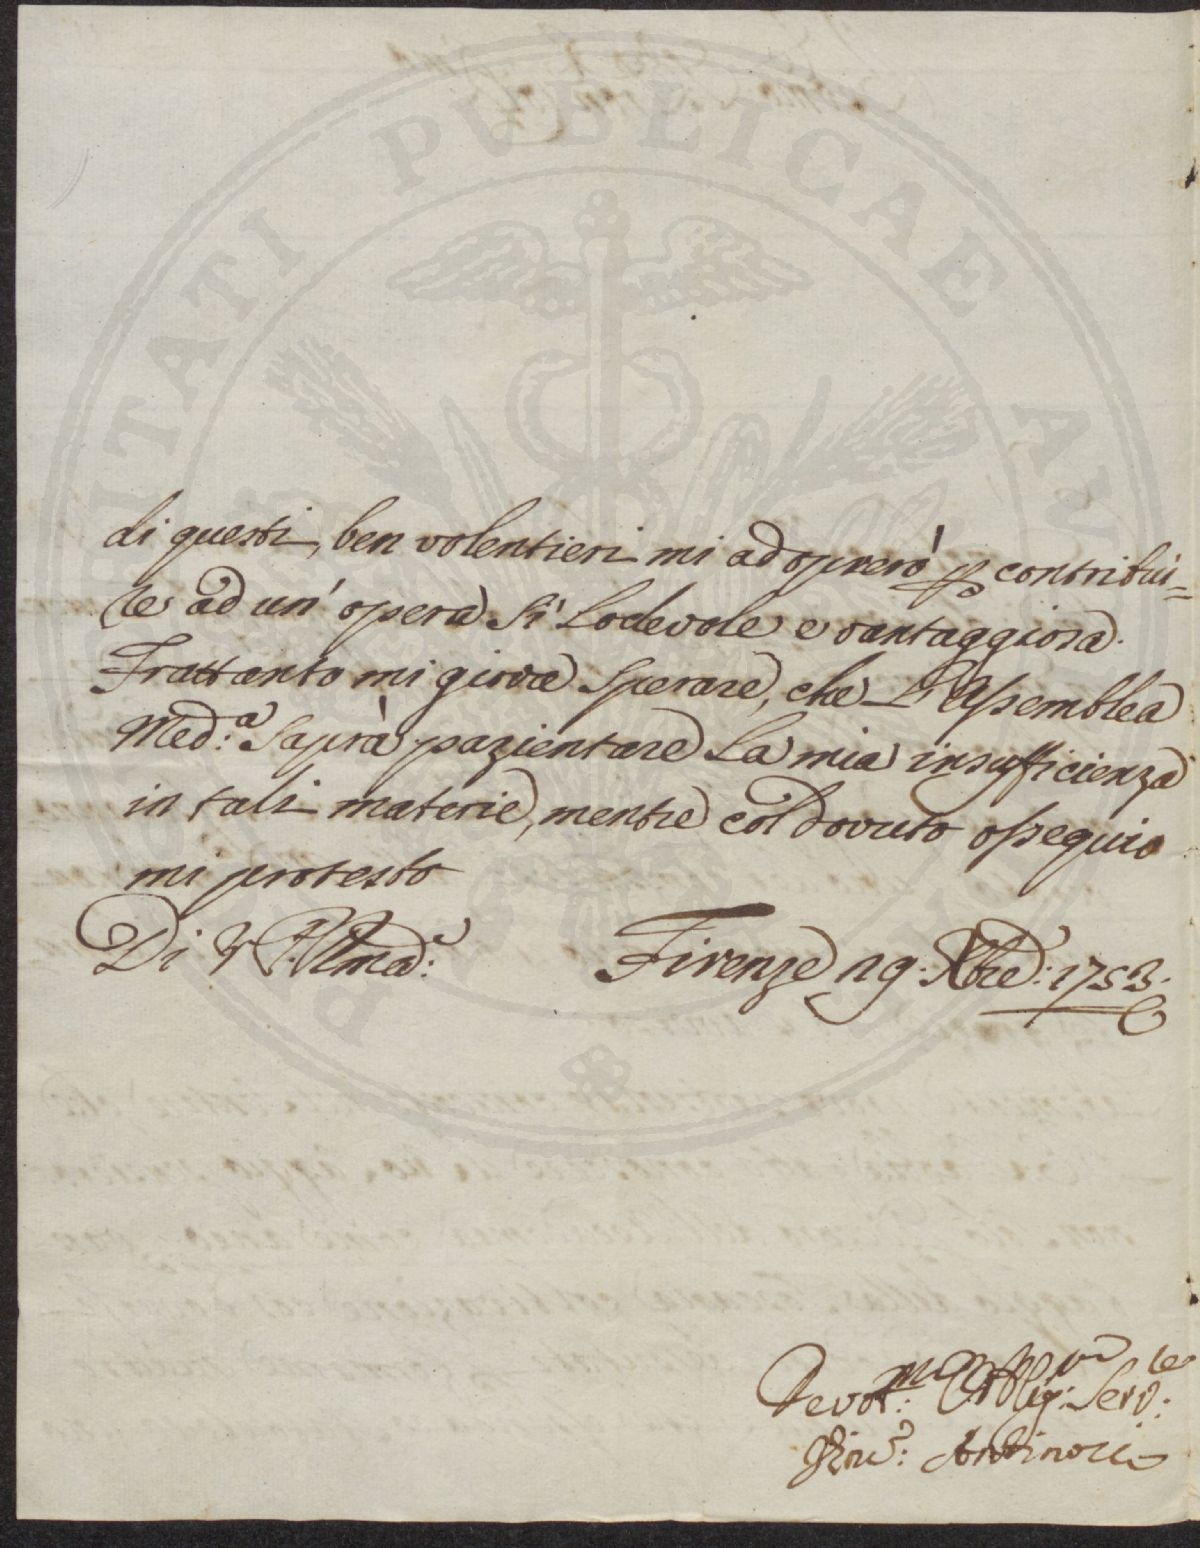 PROSPERITATI PUBLICAE AUGENDAE
di questi, ben volentieri mi adoprerò p contribui=
re ad un' opera sì Lodevole e vantaggiosa.
Frattanto mi giova sperare, che L'Assemblea
Med.a saprà pazientare La mia insufficienza
in tali materie, mentre col dovuto ossequio
mi protesto
Di V. S. Ill.ma
Firenze 29. Xbre: 1753.
Devot.mo Obblig.mo Serv.re
Antinori